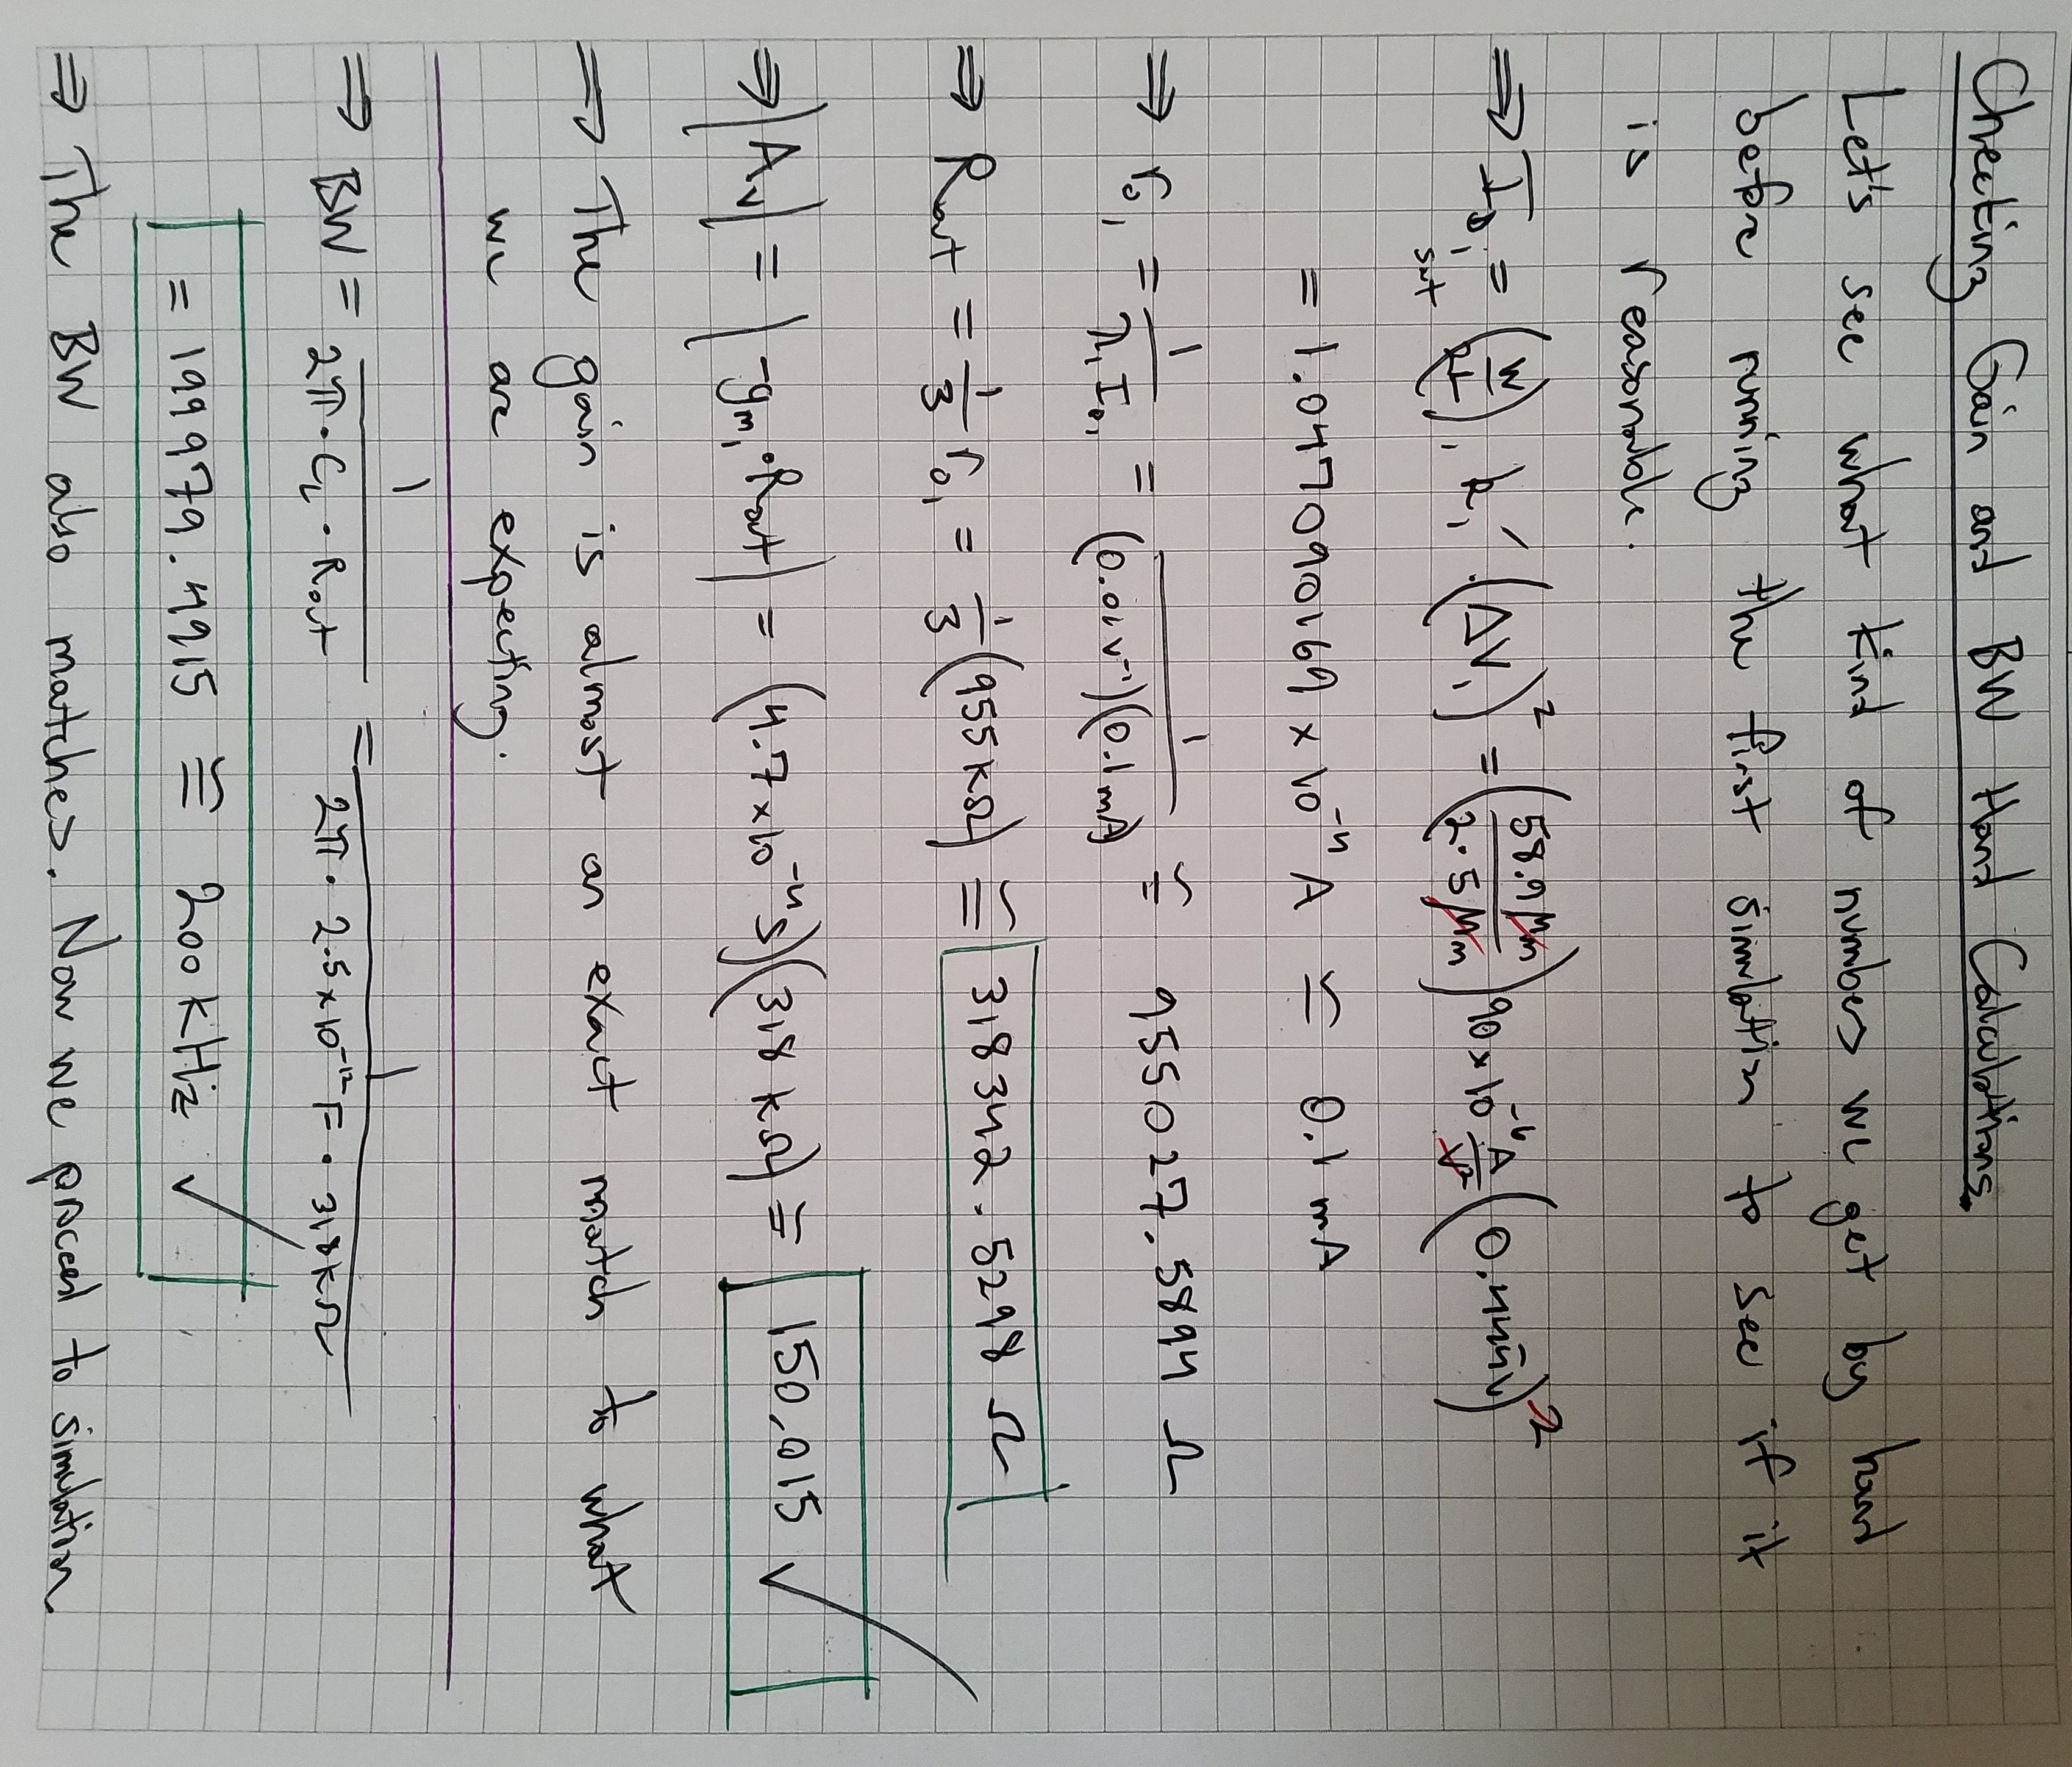 Checking Gain and BW Hand Calculations.
Let's see what kind of numbers we get by hand
before running the first simulation to see if it
is reasonable.
⇒ I_D1,sat = (W/2L)₁ k₁′·(ΔV₁)² = (58.9 μm / 2·5 μm) 90 × 10⁻⁶ A/V² (0.4445 V)²
= 1.047090169 × 10⁻⁴ A ≅ 0.1 mA
⇒ r_o1 = 1 / λ₁ I_D1 = 1 / (0.01 V⁻¹)(0.1 mA) ≅ 955027.5894 Ω
⇒ R_out = 1/3 r_o1 = 1/3 (955 kΩ) ≅ 318342.5298 Ω
⇒ |A_v| = |-g_m1 · R_out| = (4.7 × 10⁻⁴ S)(318 kΩ) ≅ 150.015 ✓
⇒ The gain is almost an exact match to what
we are expecting.
⇒ BW = 1 / 2π · C_L · R_out = 1 / 2π · 2.5 × 10⁻¹² F · 318 kΩ
= 199979.4915 ≅ 200 kHz ✓
⇒ The BW also matches. Now we proceed to simulation.